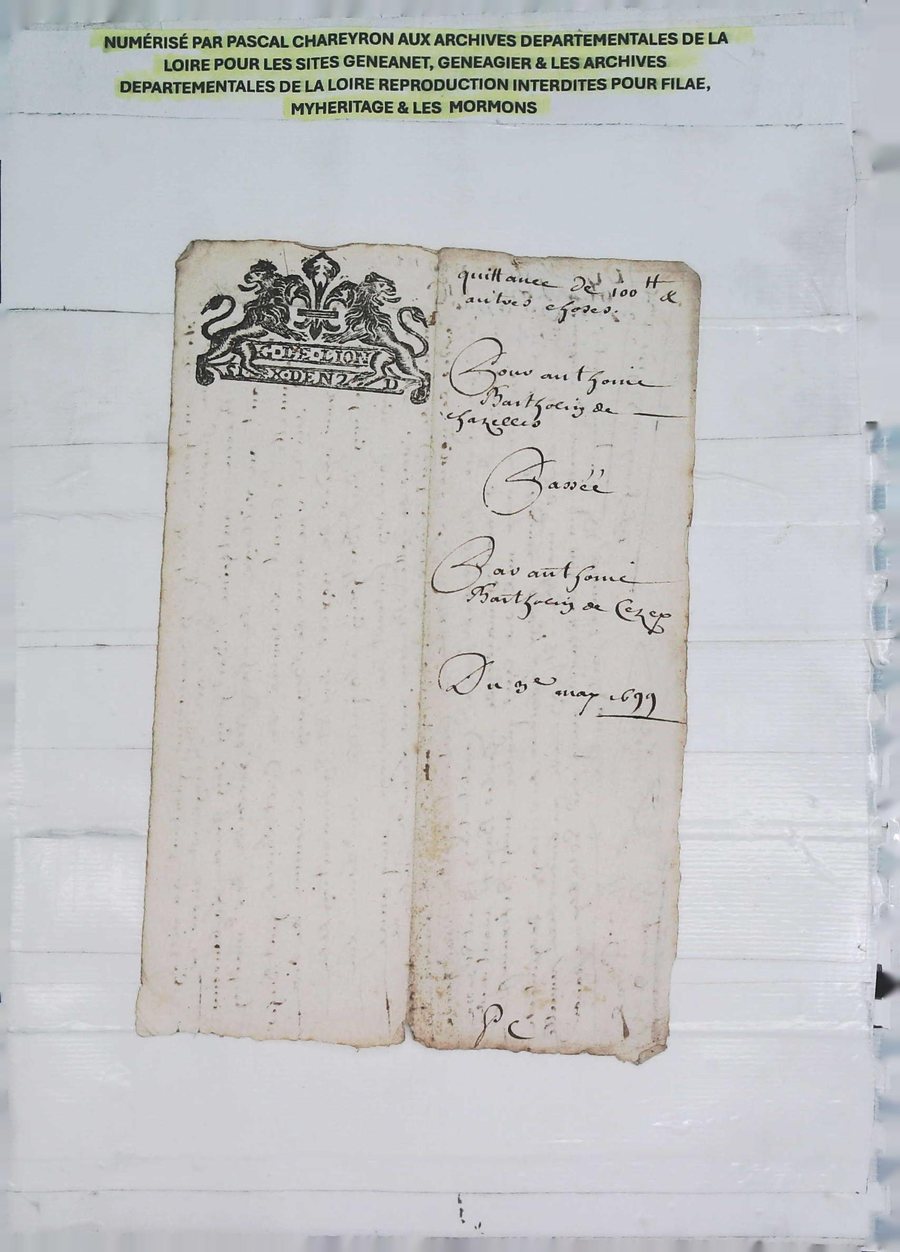 NUMÉRISÉ PAR PASCAL CHAREYRON AUX ARCHIVES DEPARTEMENTALES DE LA
LOIRE POUR LES SITES GENEANET, GENEAGIER & LES ARCHIVES
DEPARTEMENTALES DE LA LOIRE REPRODUCTION INTERDITES POUR FILAE,
MYHERITAGE & LES MORMONS
G·DE·LION
X·DEN
D
quittance de 100 tt &
autres choses.
Pour anthoine
Bartholin de
chazelles
Passée
Par anthoine
Bartholin de
Du 3e may 1699